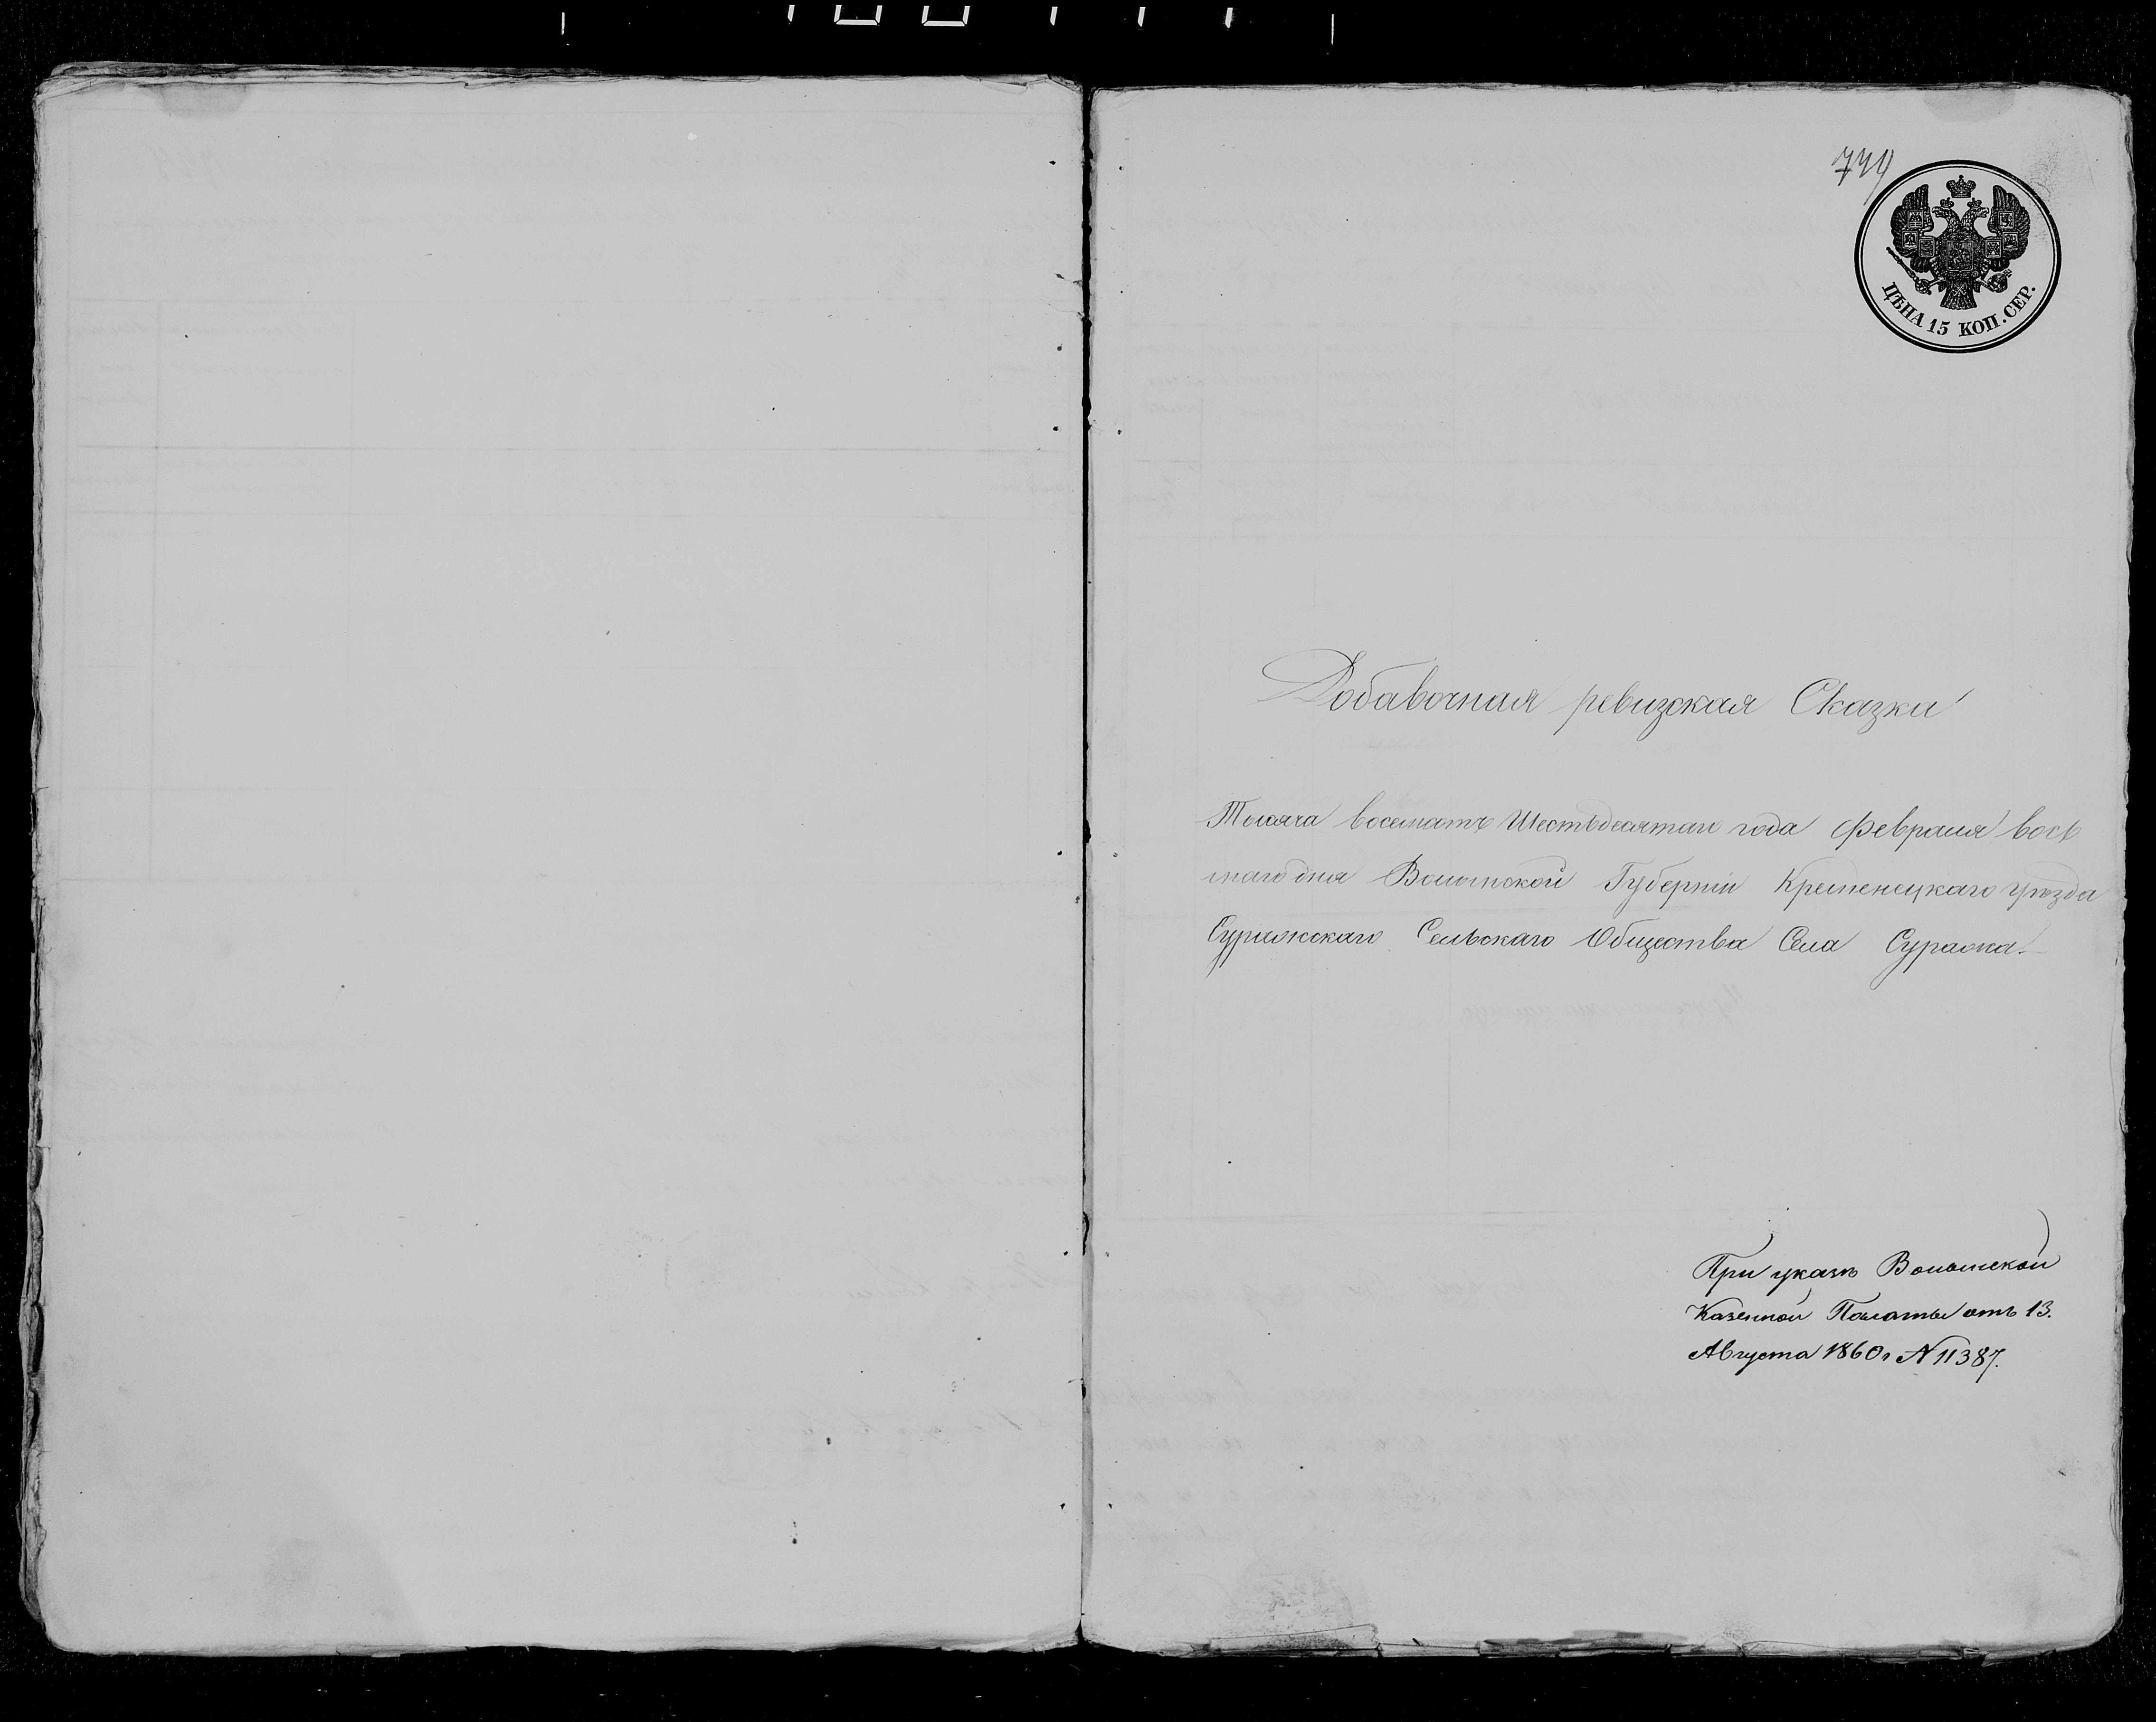 749
ЦѢНА 15 КОП. СЕР.
Добавочная ревизская Сказки
Тысяча восемать Шестьдесятаго года Февраля вось
маго дня Волынской Губерніи Кременецкаго уѣзда
Суражскаго Сельскаго Общества Села Суража.
При указѣ Волынской
Казенной Палаты отъ 13.
Августа 1860 г N 11387.